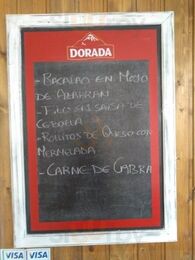 DORADA
- BACALAO EN MOJO
DE AZAFRAN
- FILO EN SALSA DE
CEBOLLA
- ROLLITOS DE QUESO CON
MERMELADA
- CARNE DE CABRA
VISA VISA